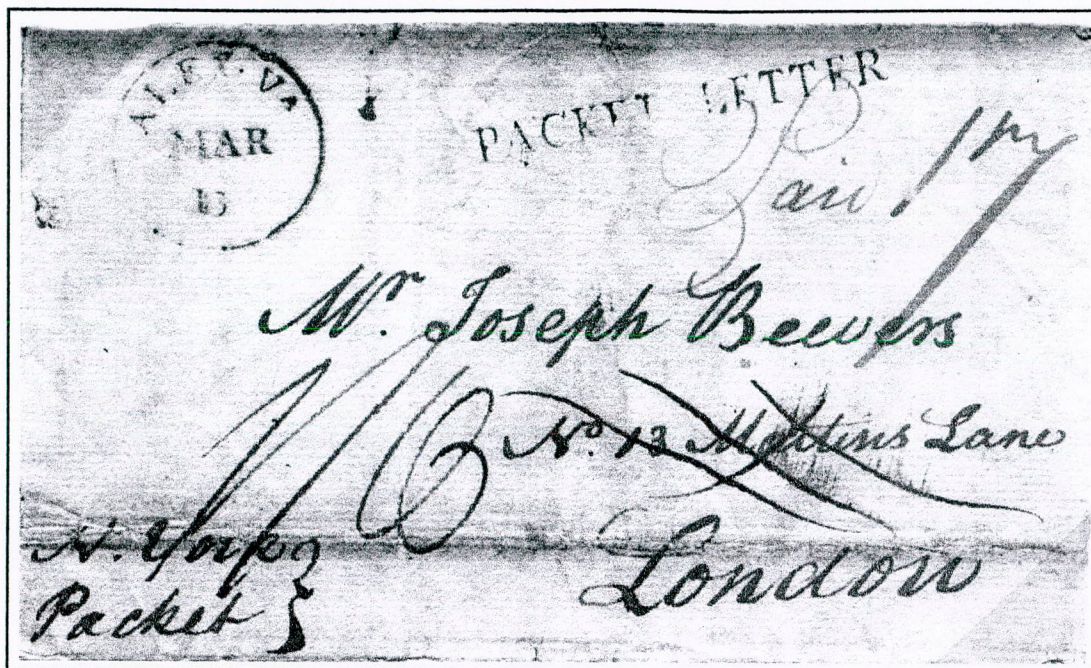 ALEX. VA
MAR
PACKET LETTER
Paid 17
Mr. Joseph Beevers
No. 13 Martins Lane
London
N. York
Packet